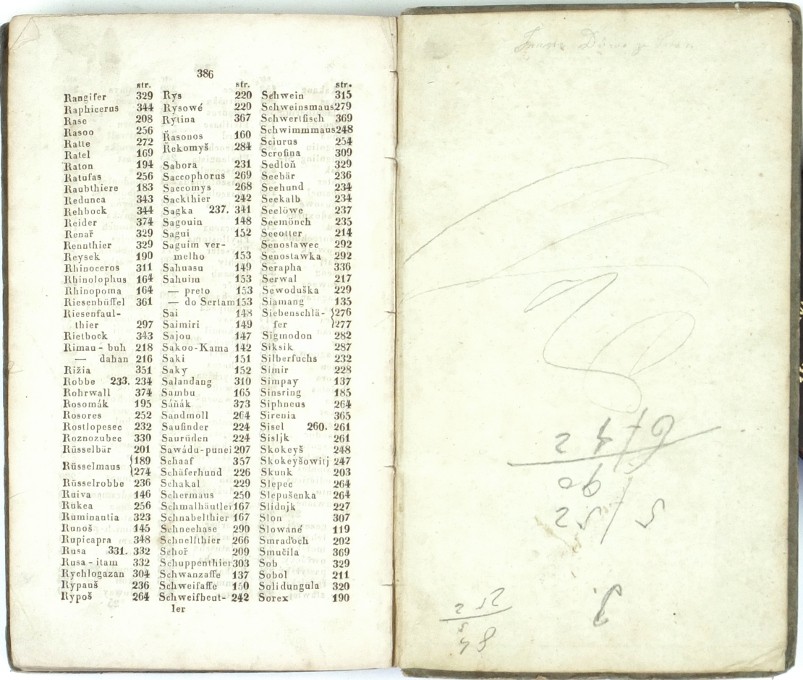 386
str.
Rangifer 329
Raphicerus 344
Rase 208
Rasoo 256
Ratte 272
Ratel 169
Raton 194
Ratufas 256
Raubthiere 183
Redunca 343
Rehbock 344
Reider 374
Renař 329
Rennthier 329
Reysek 190
Rhinoceros 311
Rhinolophus 164
Rhinopoma 164
Riesenhüffel 361
Riesenfaul-
thier 297
Rietbock 343
Rimau-buh 218
— dahan 216
Rižia 351
Robbe 233. 234
Rohrwall 374
Rosomák 195
Rosores 252
Rostlopesec 232
Roznozubec 330
Rüsselbär 201
Rüsselmaus {189
{274
Rüsselrobbe 236
Ruiva 146
Rukea 256
Ruminantia 323
Runoš 145
Rupicapra 348
Rusa 331. 332
Rusa-itam 332
Rychlogazan 304
Rypauš 236
Rypoš 264
str.
Rys 220
Rysowé 220
Rytina 367
Řasonos 160
Řekomyš 284
Sabora 231
Saccophorus 269
Saccomys 268
Sackthier 242
Sagka 237. 341
Sagouin 148
Sagui 152
Saguim ver-
melho 153
Sahuasu 149
Sahuim 153
— preto 153
— do Sertam 153
Sai 148
Saimiri 149
Sajou 147
Sakoo-Kama 142
Saki 151
Saky 152
Salandang 310
Sambu 165
Sáňák 373
Sandmoll 264
Saufinder 224
Saurüden 224
Sawádu-punei 207
Schaaf 357
Schäferhund 226
Schakal 229
Schermaus 250
Schmalhäutler 167
Schnabelthier 167
Schneehase 290
Schnellthier 266
Schoř 209
Schuppenthier 303
Schwanzaffe 137
Schweifaffe 150
Schweifbeut- 242
ler
str.
Schwein 315
Schweinsmaus 279
Schwertfisch 369
Schwimmmaus 248
Sciurus 254
Scrofina 309
Sedloň 329
Seebär 236
Seehund 234
Seekalb 234
Seelöwe 237
Seemönch 235
Seeotter 214
Senostawec 292
Senostawka 292
Serapha 336
Serwal 217
Sewoduška 229
Siamang 135
Siebenschlä- }276
fer }277
Sigmodon 282
Siksik 287
Silberfuchs 232
Simir 228
Simpay 137
Sinsring 185
Siphneus 264
Sirenia 365
Sisel 260. 261
Sisljk 261
Skokeyš 248
Skokeyšowitj 247
Skunk 203
Slepec 264
Slepušenka 264
Slidnjk 227
Slon 307
Slowané 119
Smraďoch 202
Smučila 369
Sob 329
Sobol 211
Solidungula 320
Sorex 190